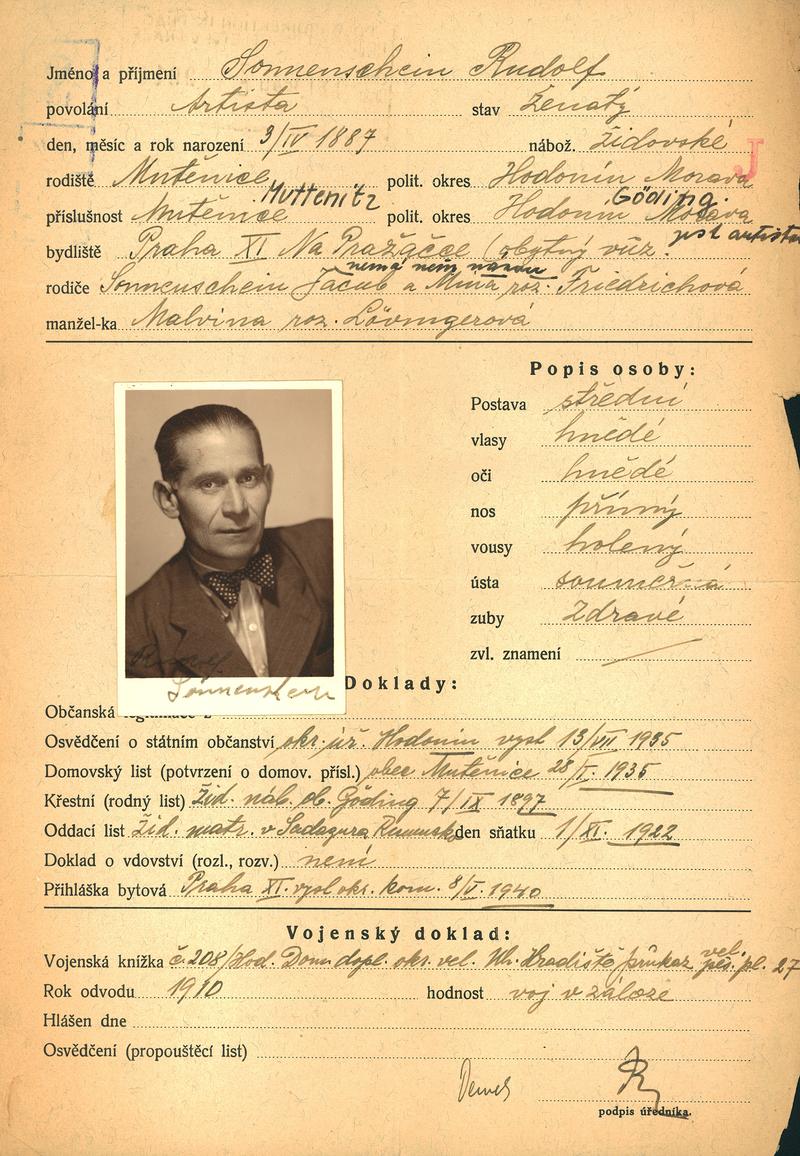 Jméno a příjmení Sonnenschein Rudolf
povolání Artista stav ženatý
den, měsíc a rok narození 3/IV 1887 nábož. židovské
J
rodiště Mutěnice polit. okres Hodonín Morava
Muttenitz Göding.
příslušnost Mutěnice polit. okres Hodonín Morava
jest artista
bydliště Praha XI Na Pražačce (obytný vůz.
nemá
rodiče Sonnenschein Jacub a Mina roz. Friedrichová
manžel-ka Malvina roz. Lövingerová
Popis osoby:
Postava střední
vlasy hnědé
oči hnědé
nos přímý
vousy holený
ústa souměrná
zuby zdravé
zvl. znamení
Rudolf
Sonnenschein
Doklady:
Občanská
Osvědčení o státním občanství okr. úř. Hodonín vyst 13/VII 1935
Domovský list (potvrzení o domov. přísl.) obec Mutěnice 28/I. 1935
Křestní (rodný list) Žid. náb. ob. Göding 7/IX 1897
Oddací list Žid. matr. v Sadagura Rumunsko den sňatku 1/XI. 1922
Doklad o vdovství (rozl., rozv.) není
Přihláška bytová Praha XI. vyst okr. kom. 8/V. 1940
Vojenský doklad:
Vojenská knižka č. 208/Hod. Dom. dopl. okr. vel. Uh. Hradiště průkaz vel. pěš. pl. 27
Rok odvodu 1910 hodnost voj v záloze
Hlášen dne
Osvědčení (propouštěcí list)
podpis úředníka.